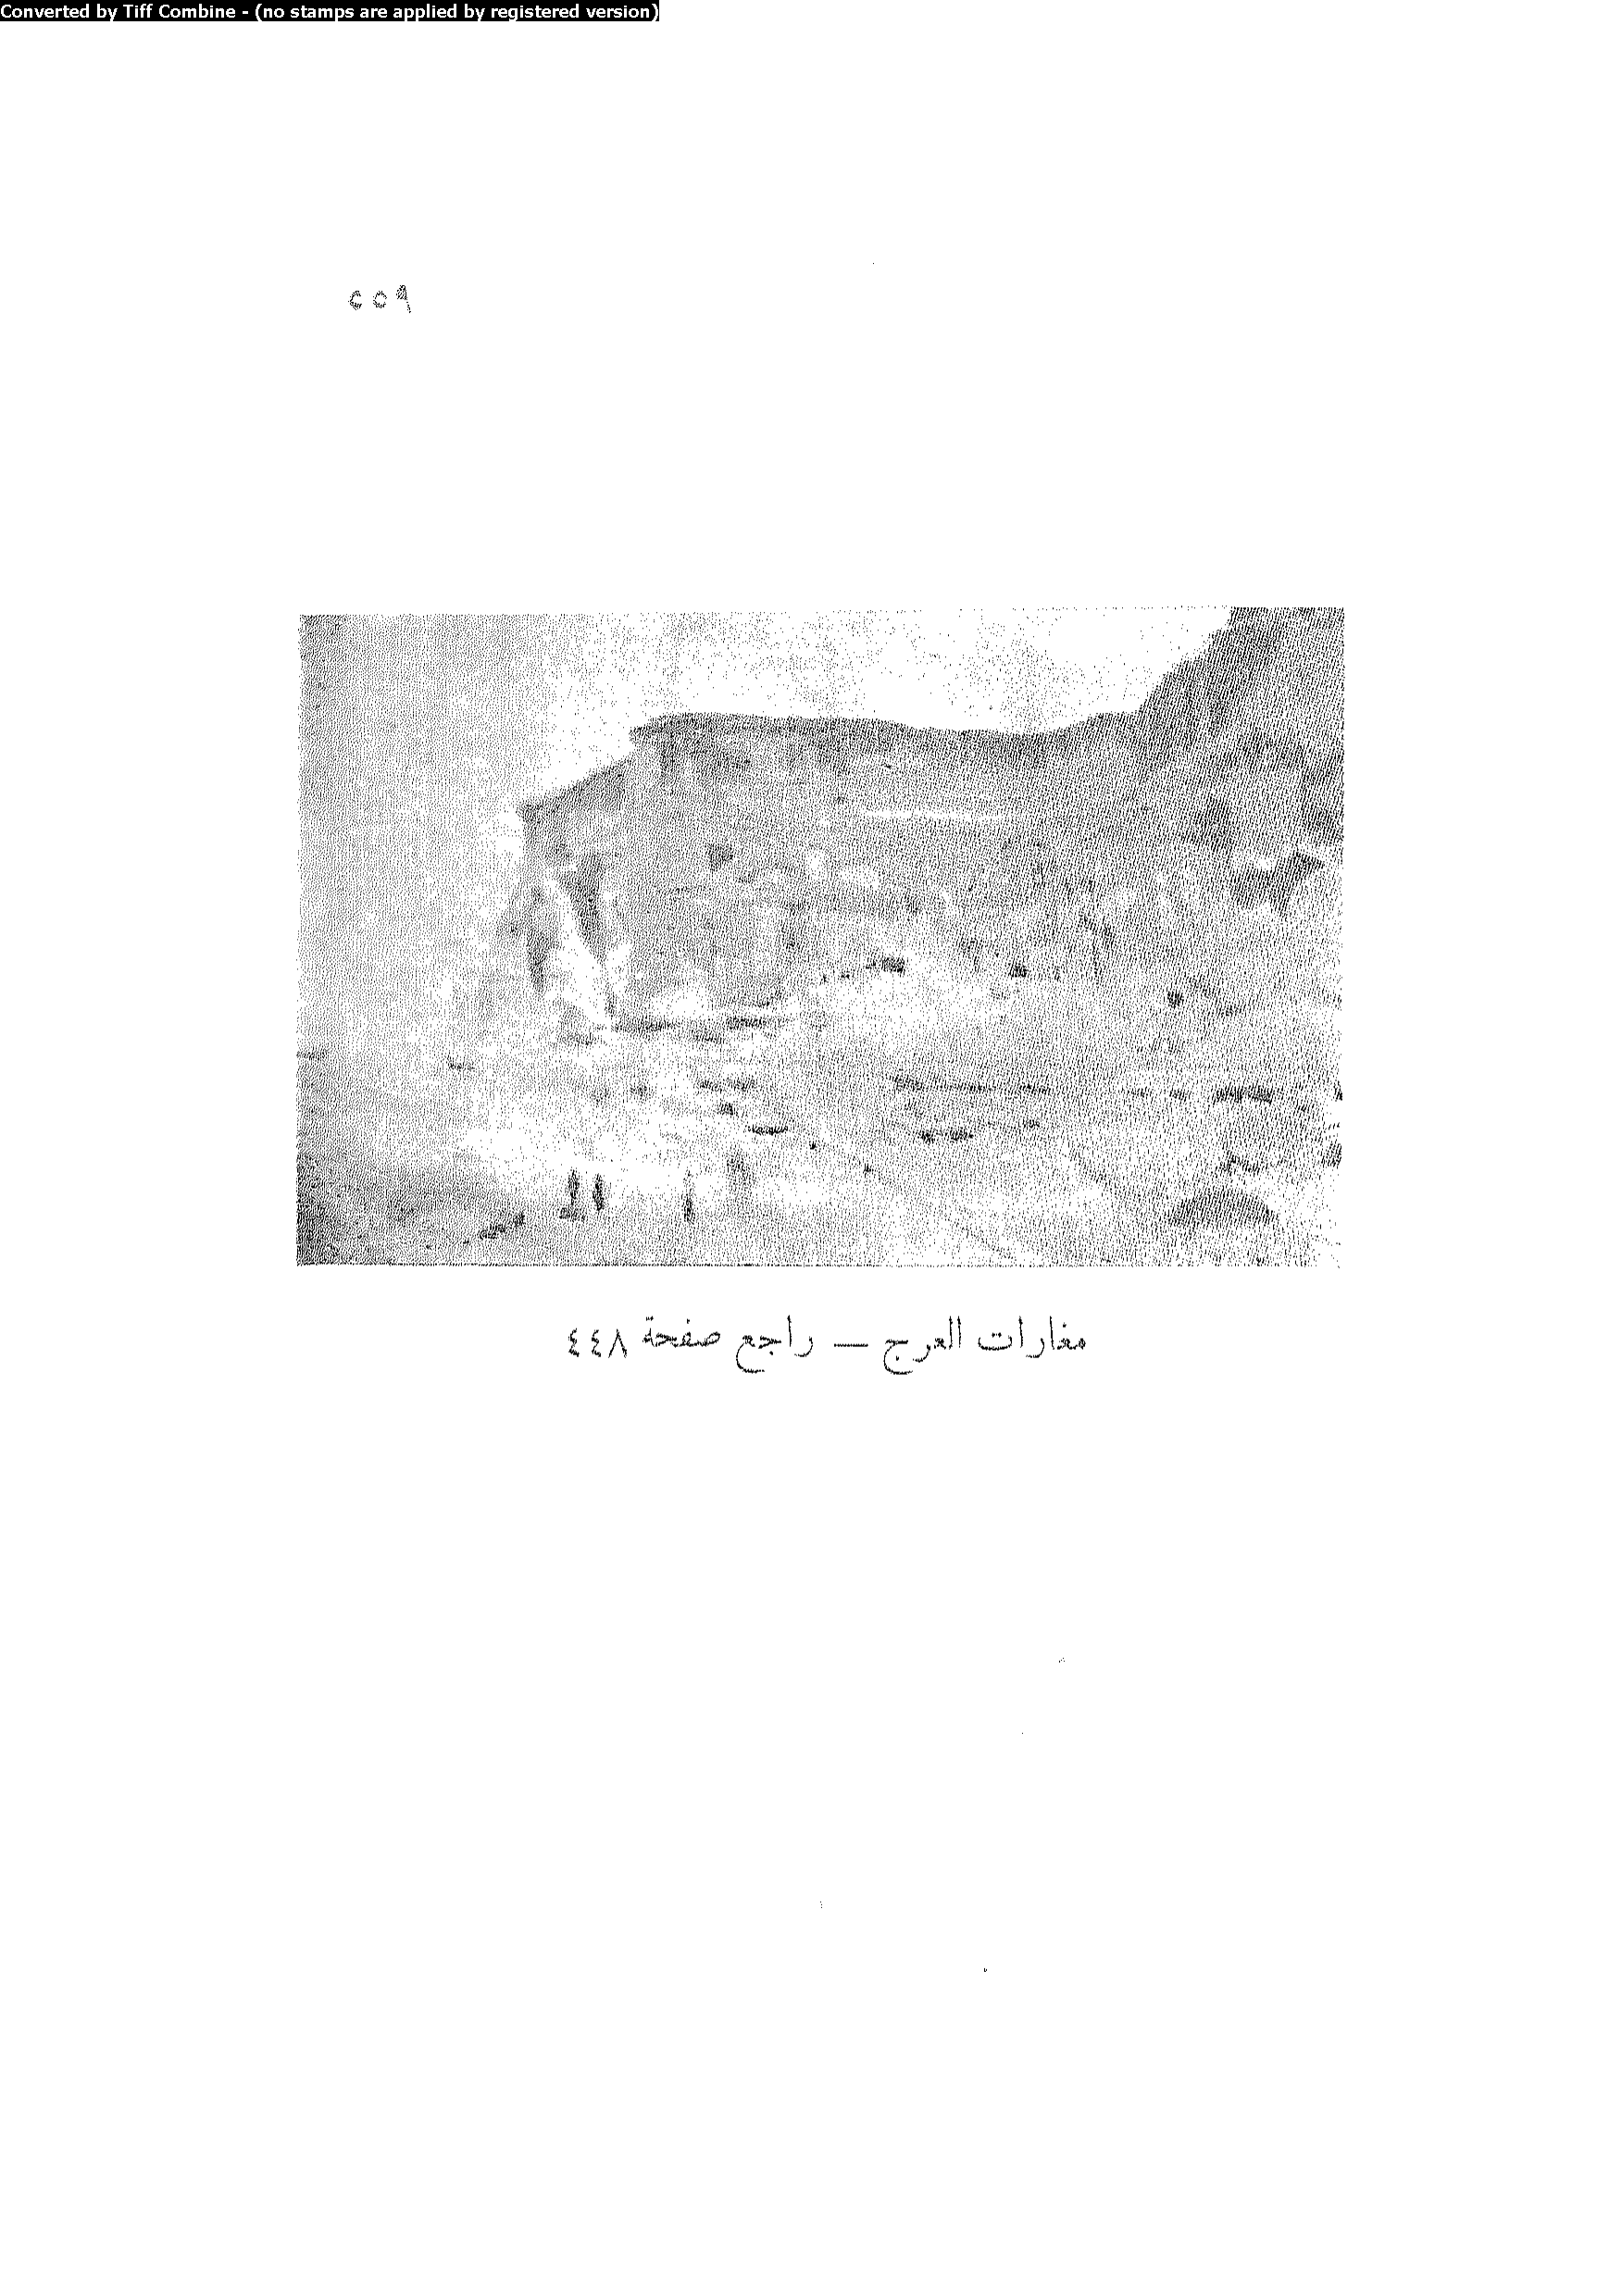 Converted by Tiff Combine - (no stamps are applied by registered version)
٥٥٩
مغارات العرج — راجع صفحة ٤٤٨